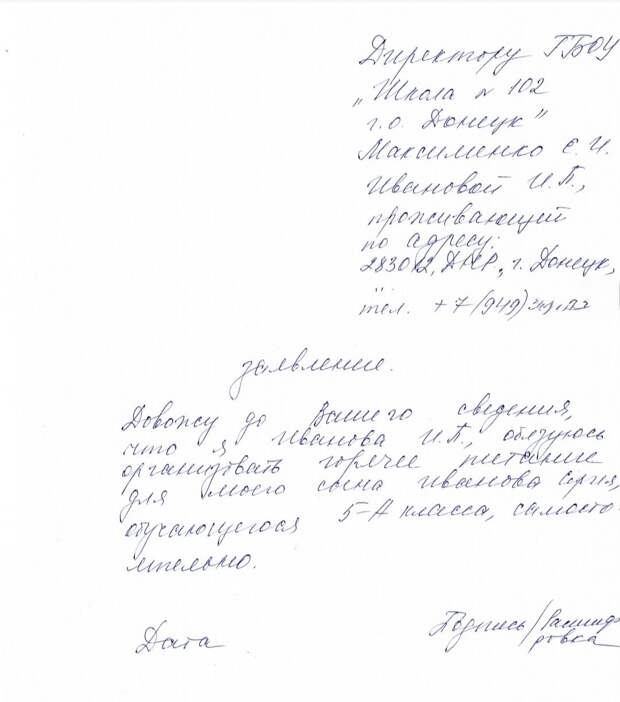 Директору ГБОУ
„Школа № 102
г.о. Донецк"
Максименко Е.И.
Ивановой И.П.,
проживающей
по адресу:
283012, ДНР, г. Донецк,
тел. +7 (949)
заявление.
Довожу до Вашего сведения,
что я Иванова И.П., обязуюсь
организовать горячее питание
для моего сына Иванова Сергея,
обучающегося 5-А класса, самосто-
ятельно.
Дата
Подпись/Расшиф
ровка